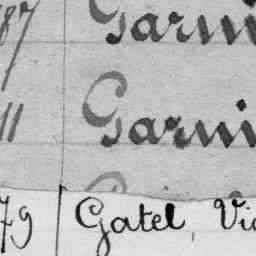 87 Garni
11 Garni
79 Gatel, Vic